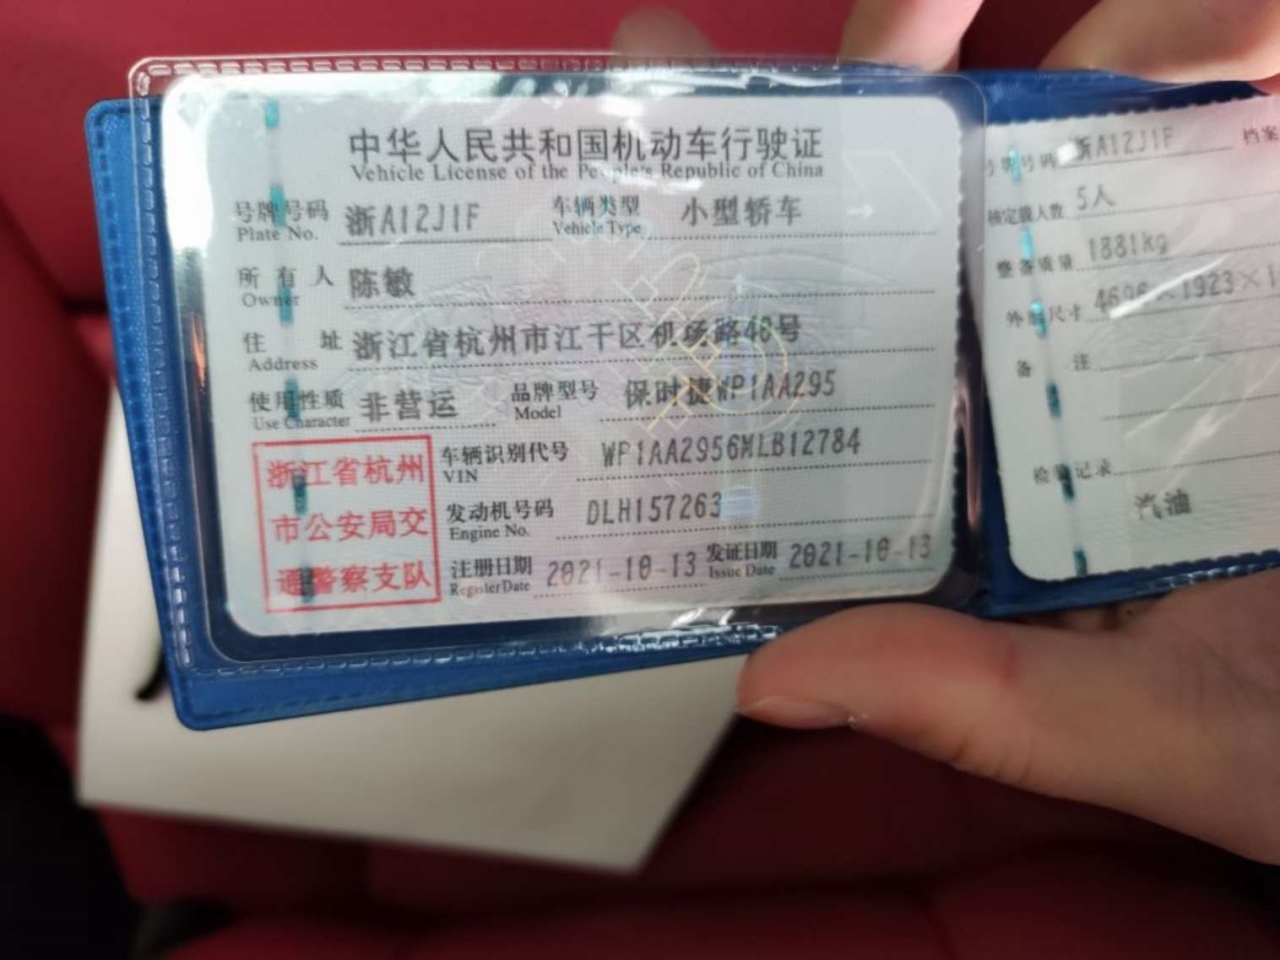 中华人民共和国机动车行驶证
Vehicle License of the People's Republic of China
号牌号码 浙A12J1F 车辆类型 小型轿车
Plate No. Vehicle Type
所有人 陈敏
Owner
住址 浙江省杭州市江干区机场路48号
Address
使用性质 非营运 品牌型号 保时捷WP1AA295
Use Character Model
浙江省杭州
市公安局交
通警察支队
车辆识别代号 WP1AA2956MLB12784
VIN
发动机号码 DLH157263
Engine No.
注册日期 2021-10-13 发证日期 2021-10-13
Register Date Issue Date
号牌号码 浙A12J1F 档案
核定载人数 5人
整备质量 1881kg
外廓尺寸 4696×1923×1
备注
检验记录
汽油